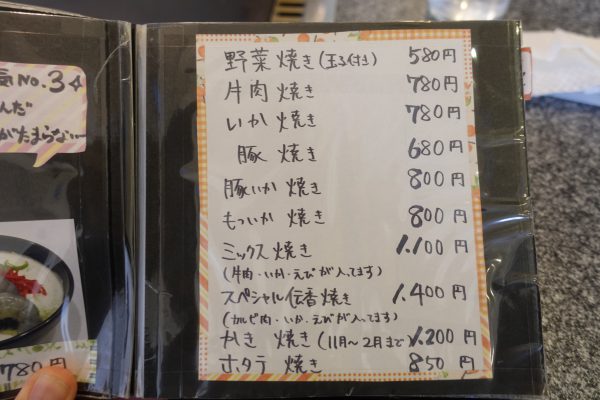 気NO.3
んだ
がたまらない
780円
野菜焼き(玉子付き) 580円
牛肉焼き 780円
いか焼き 780円
豚焼き 680円
豚いか焼き 800円
もついか焼き 800円
ミックス焼き 1.100円
(牛肉・いか・えびが入ってます)
スペシャル伝香焼き 1.400円
(カルビ肉・いか・えびが入ってます)
かき焼き(11月〜2月まで 1.200円
ホタテ焼き 850円